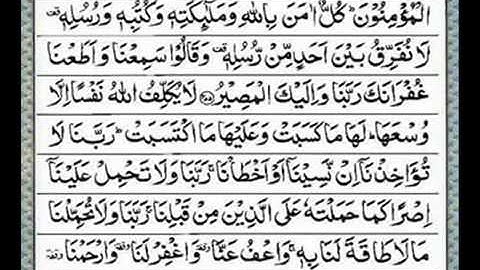 الْمُؤْمِنُوْنَ ؕ كُلٌّ اٰمَنَ بِاللّٰهِ وَمَلٰٓئِكَتِهٖ وَكُتُبِهٖ وَرُسُلِهٖ ۫
لَا نُفَرِّقُ بَيْنَ اَحَدٍ مِّنْ رُّسُلِهٖ ۫ وَقَالُوْا سَمِعْنَا وَاَطَعْنَا
غُفْرَانَكَ رَبَّنَا وَاِلَيْكَ الْمَصِيْرُ ﴿۲۸۵﴾ لَا يُكَلِّفُ اللّٰهُ نَفْسًا اِلَّا
وُسْعَهَا ؕ لَهَا مَا كَسَبَتْ وَعَلَيْهَا مَا اكْتَسَبَتْ ؕ رَبَّنَا لَا
تُؤَاخِذْنَاۤ اِنْ نَّسِيْنَاۤ اَوْ اَخْطَاْنَا ۚ رَبَّنَا وَلَا تَحْمِلْ عَلَيْنَاۤ
اِصْرًا كَمَا حَمَلْتَهٗ عَلَى الَّذِيْنَ مِنْ قَبْلِنَا ۚ رَبَّنَا وَلَا تُحَمِّلْنَا
مَا لَا طَاقَةَ لَنَا بِهٖ ۚ وَاعْفُ عَنَّا ۥ وَاغْفِرْ لَنَا ۥ وَارْحَمْنَا ۥ